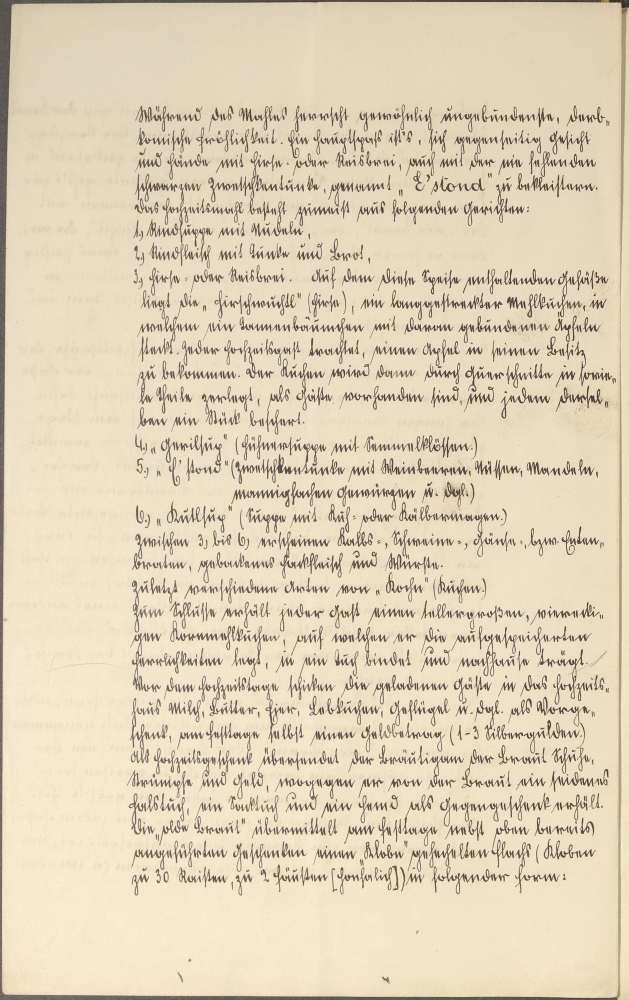 Während des Mahles herrscht gewöhnlich ungebundenste, derb-
komische Fröhlichkeit. Ein Hauptspaß ist's, sich gegenseitig Gesicht
und Hände mit Hirse- oder Reisbrei, auch mit der nie fehlenden
schwarzen Zwetschkentunke, genannt „E'stond" zu bekleistern.
Das Hochzeitsmahl besteht zumeist aus folgenden Gerichten:
1.) Rindsuppe mit Nudeln,
2.) Rindfleisch mit Tunke und Brot,
3.) Hirse- oder Reisbrei. Auf dem diese Speise enthaltenden Gefäße
liegt die „Hirschwuchtl" (Hirse), ein langgestreckter Mehlkuchen, in
welchem ein Tannenbäumchen mit daran gebundenen Äpfeln
steckt. Jeder Hochzeitsgast trachtet, einen Apfel in seinen Besitz
zu bekommen. Der Kuchen wird dann durch Querschnitte in sovie-
le Theile zerlegt, als Gäste vorhanden sind, und jedem dersel-
ben ein Stück beschert.
4.) „Gerilsup" (Hühnersuppe mit Semmelklössen.)
5.) „E'stond" (Zwetschkentunke mit Weinbeeren, Nüssen, Mandeln,
mannigfachen Gewürzen u. dgl.)
6.) „Kutlsup" (Suppe mit Kuh- oder Kälbermagen.)
Zwischen 3.) bis 6.) erscheinen Kalbs-, Schweine-, Gänse-, bzw. Enten-
braten, gebackenes Hackfleisch und Würste.
Zuletzt verschiedene Arten von „Kochn" (Kuchen.)
Zum Schlusse erhält jeder Gast einen tellergroßen, vierecki-
gen Kornmehlkuchen, auf welchen er die aufgespeicherten
Herrlichkeiten legt, in ein Tuch bindet und nachhause trägt.
Vor dem Hochzeitstage schicken die geladenen Gäste in das Hochzeits-
haus Milch, Butter, Eier, Lebkuchen, Geflügel u. dgl. als Vorge-
schenk, am Festtage selbst einen Geldbetrag (1-3 Silbergulden.)
Als Hochzeitsgeschenk übersendet der Bräutigam der Braut Schuhe,
Strümpfe und Geld, wogegen er von der Braut ein seidenes
Halstuch, ein Sacktuch und ein Hemd als Gegengeschenk erhält.
Die „olde Braut" übermittelt am Festtage nebst oben bereits
angeführten Geschenken einen „Klobn" gehechelten Flachs (Kloben
zu 30 Raisten, zu 2 Fäusten [Honfalich]) in folgender Form: